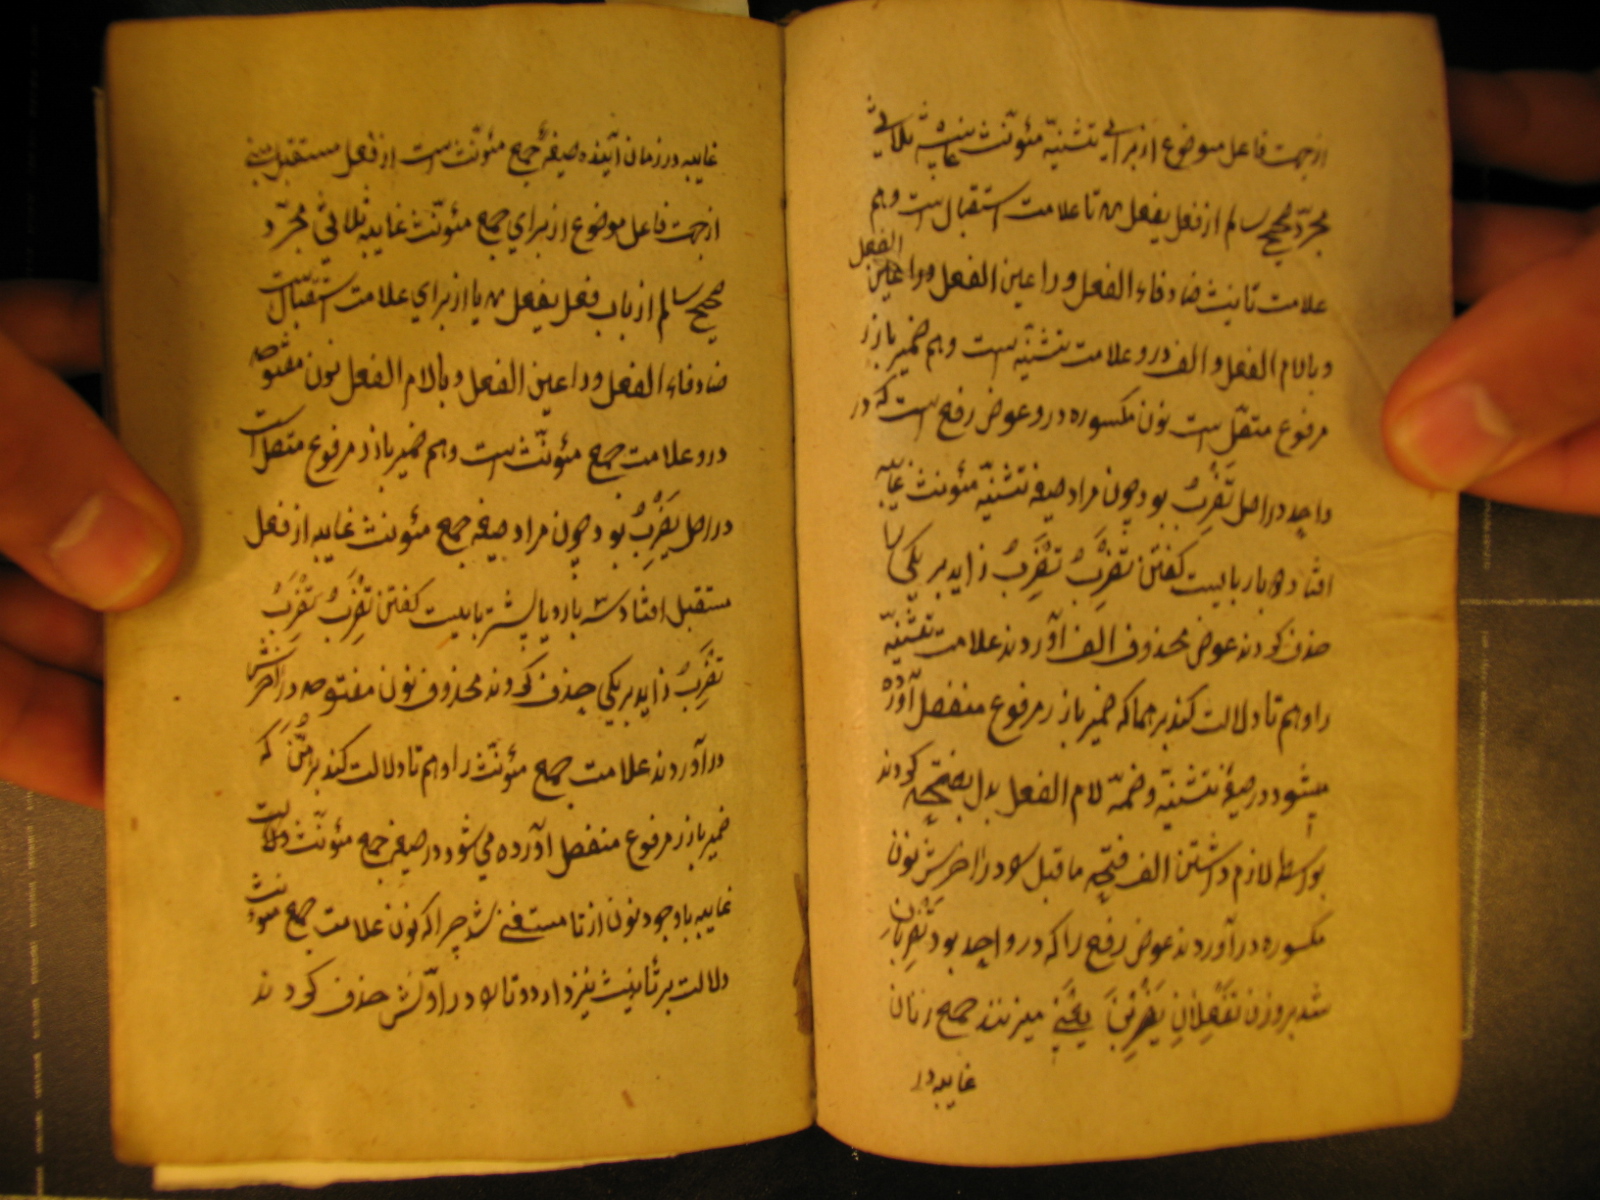 ازجهت فاعل موضوع ازبرای تثنیهٔ مئونث غایبه ثلاثی
مجرّد صحیح سالم از فعل یفعل تا علامت استقبال است و هم
علامت تانیث ضاد فاء الفعل و را عین الفعل
و با لام الفعل و الف درو علامت تثنیه است و هم ضمیر بارز
مرفوع متصل است نون مکسوره درو عوض رفع است که در
واحد در اصل تَضْرِبُ بود چون مراد صیغه تثنیهٔ مئونث غایبه
افتاد دو بار بایست کفتن تَضْرِبُ تَضْرِبُ زاید بر یکی را
حذف کردند عوض محذوف الف آوردند علامت تثنیه
را و هم تا دلالت کند بر هما که ضمیر بارز مرفوع منفصل آورده
میشود در صیغهٔ تثنیه و ضمّه لام الفعل بدل بفتحه کردند
بواسطه لازم داشتن الف فتحه ماقبل را در اخرش نون
مکسوره در آوردند عوض رفع را که در واحد بود تَضْرِبَانِ
شد بر وزن تَفْعِلَانِ یَضْرِبْنَ یعنی میزنند جمیع زنان
غایبه در
غایبه در زمان آینده صیغهٔ جمع مئونث است از فعل مستقبل مبنی
ازجهت فاعل موضوع ازبرای جمع مئونث غایبه ثلاثی مجرّد
صحیح سالم از باب فعل یفعل یا ازبرای علامت استقبال است
ضاد فاء الفعل و را عین الفعل و با لام الفعل نون مفتوحه
درو علامت جمع مئونث است و هم ضمیر بارز مرفوع متصل است
در اصل یَضْرِبُ بود چون مراد صیغه جمع مئونث غایبه از فعل
مستقبل افتاد سه بار و یا بیشتر بایست کفتن تَضْرِبُ تَضْرِبُ
تَضْرِبُ زاید بر یکی حذف کردند محذوف نون مفتوحه در آخرش
در آوردند علامت جمع مئونث را و هم تا دلالت کند بر هُنَّ که
ضمیر بارز مرفوع منفصل آورده می شود در صیغه جمع مئونث
غایبه با وجود نون از تا مستغنی شد چرا که نون علامت جمع مئونث
دلالت بر تأنیث نیز دارد تا را در اوّلش حذف کردند